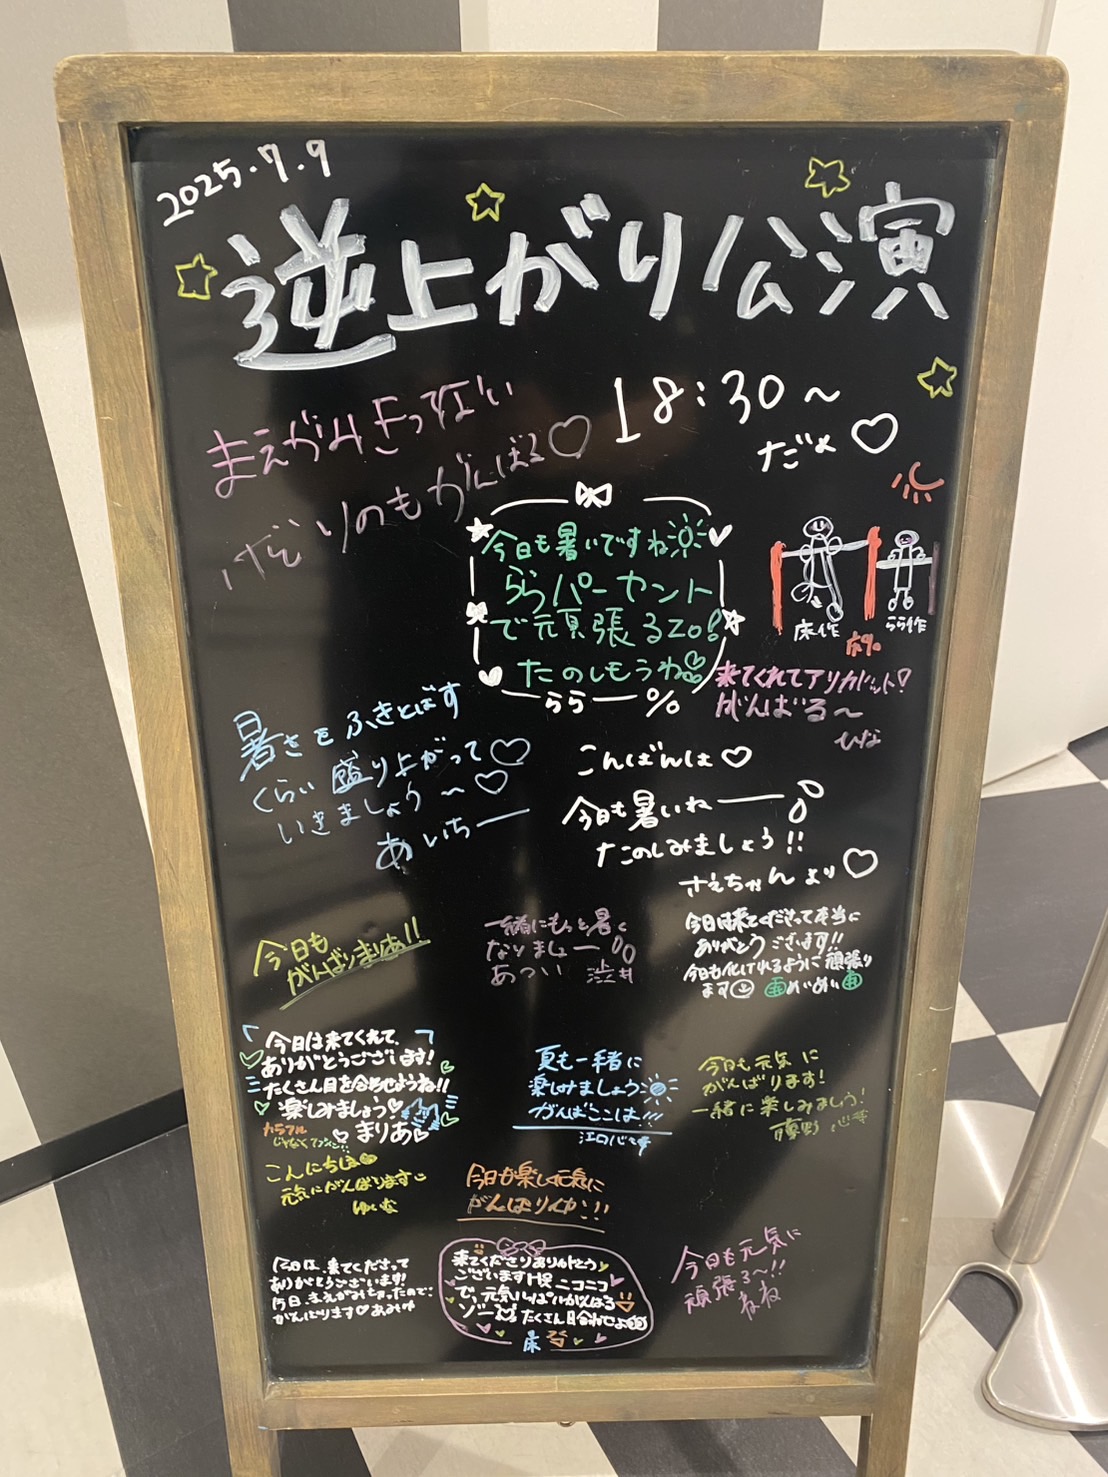 2025.7.9
逆上がり公演
18:30～
だよ♡
まえがみきってない
けど りのも がんばる♡
今日も暑いですね
ららパーセント
で元気 頑張るzo!
たのしもうね
らら—%
床作
らら作
来てくれてアリガット!
がんばる～
ひな
暑さをふきとばす
くらい盛り上がって♡
いきましょう～♡
あいちー
こんばんは♡
今日も暑いねー
たのしみましょう!!
さえちゃんより♡
今日も
がんばりまりあ!!
一緒にもっと暑く
なりましょー
あつい 渋井
今日は来てくださって本当に
ありがとうございます!!
今日も化けれるように頑張り
ます めいめい
今日は来てくれて、
ありがとうございます!
たくさん目を合わせようね!!
楽しみましょう♡
カラフル
まりあ♡
夏も一緒に
楽しみましょう
がんばここは!!!
江口心です
今日も元気に
がんばります!
一緒に楽しみましょう!
こんにちは
元気にがんばります
ゆいな
今日も楽しく元気に
がんばりゆ!!!
今日は、来てくださって
ありがとうございます!
今日、まえがみ
がんばります♡
来てくださりありがとう
ございます ニコニコ
で、元気いっぱいがんばる
ゾー たくさん目合わせよ
今日も元気に
頑張る～!!
ねね